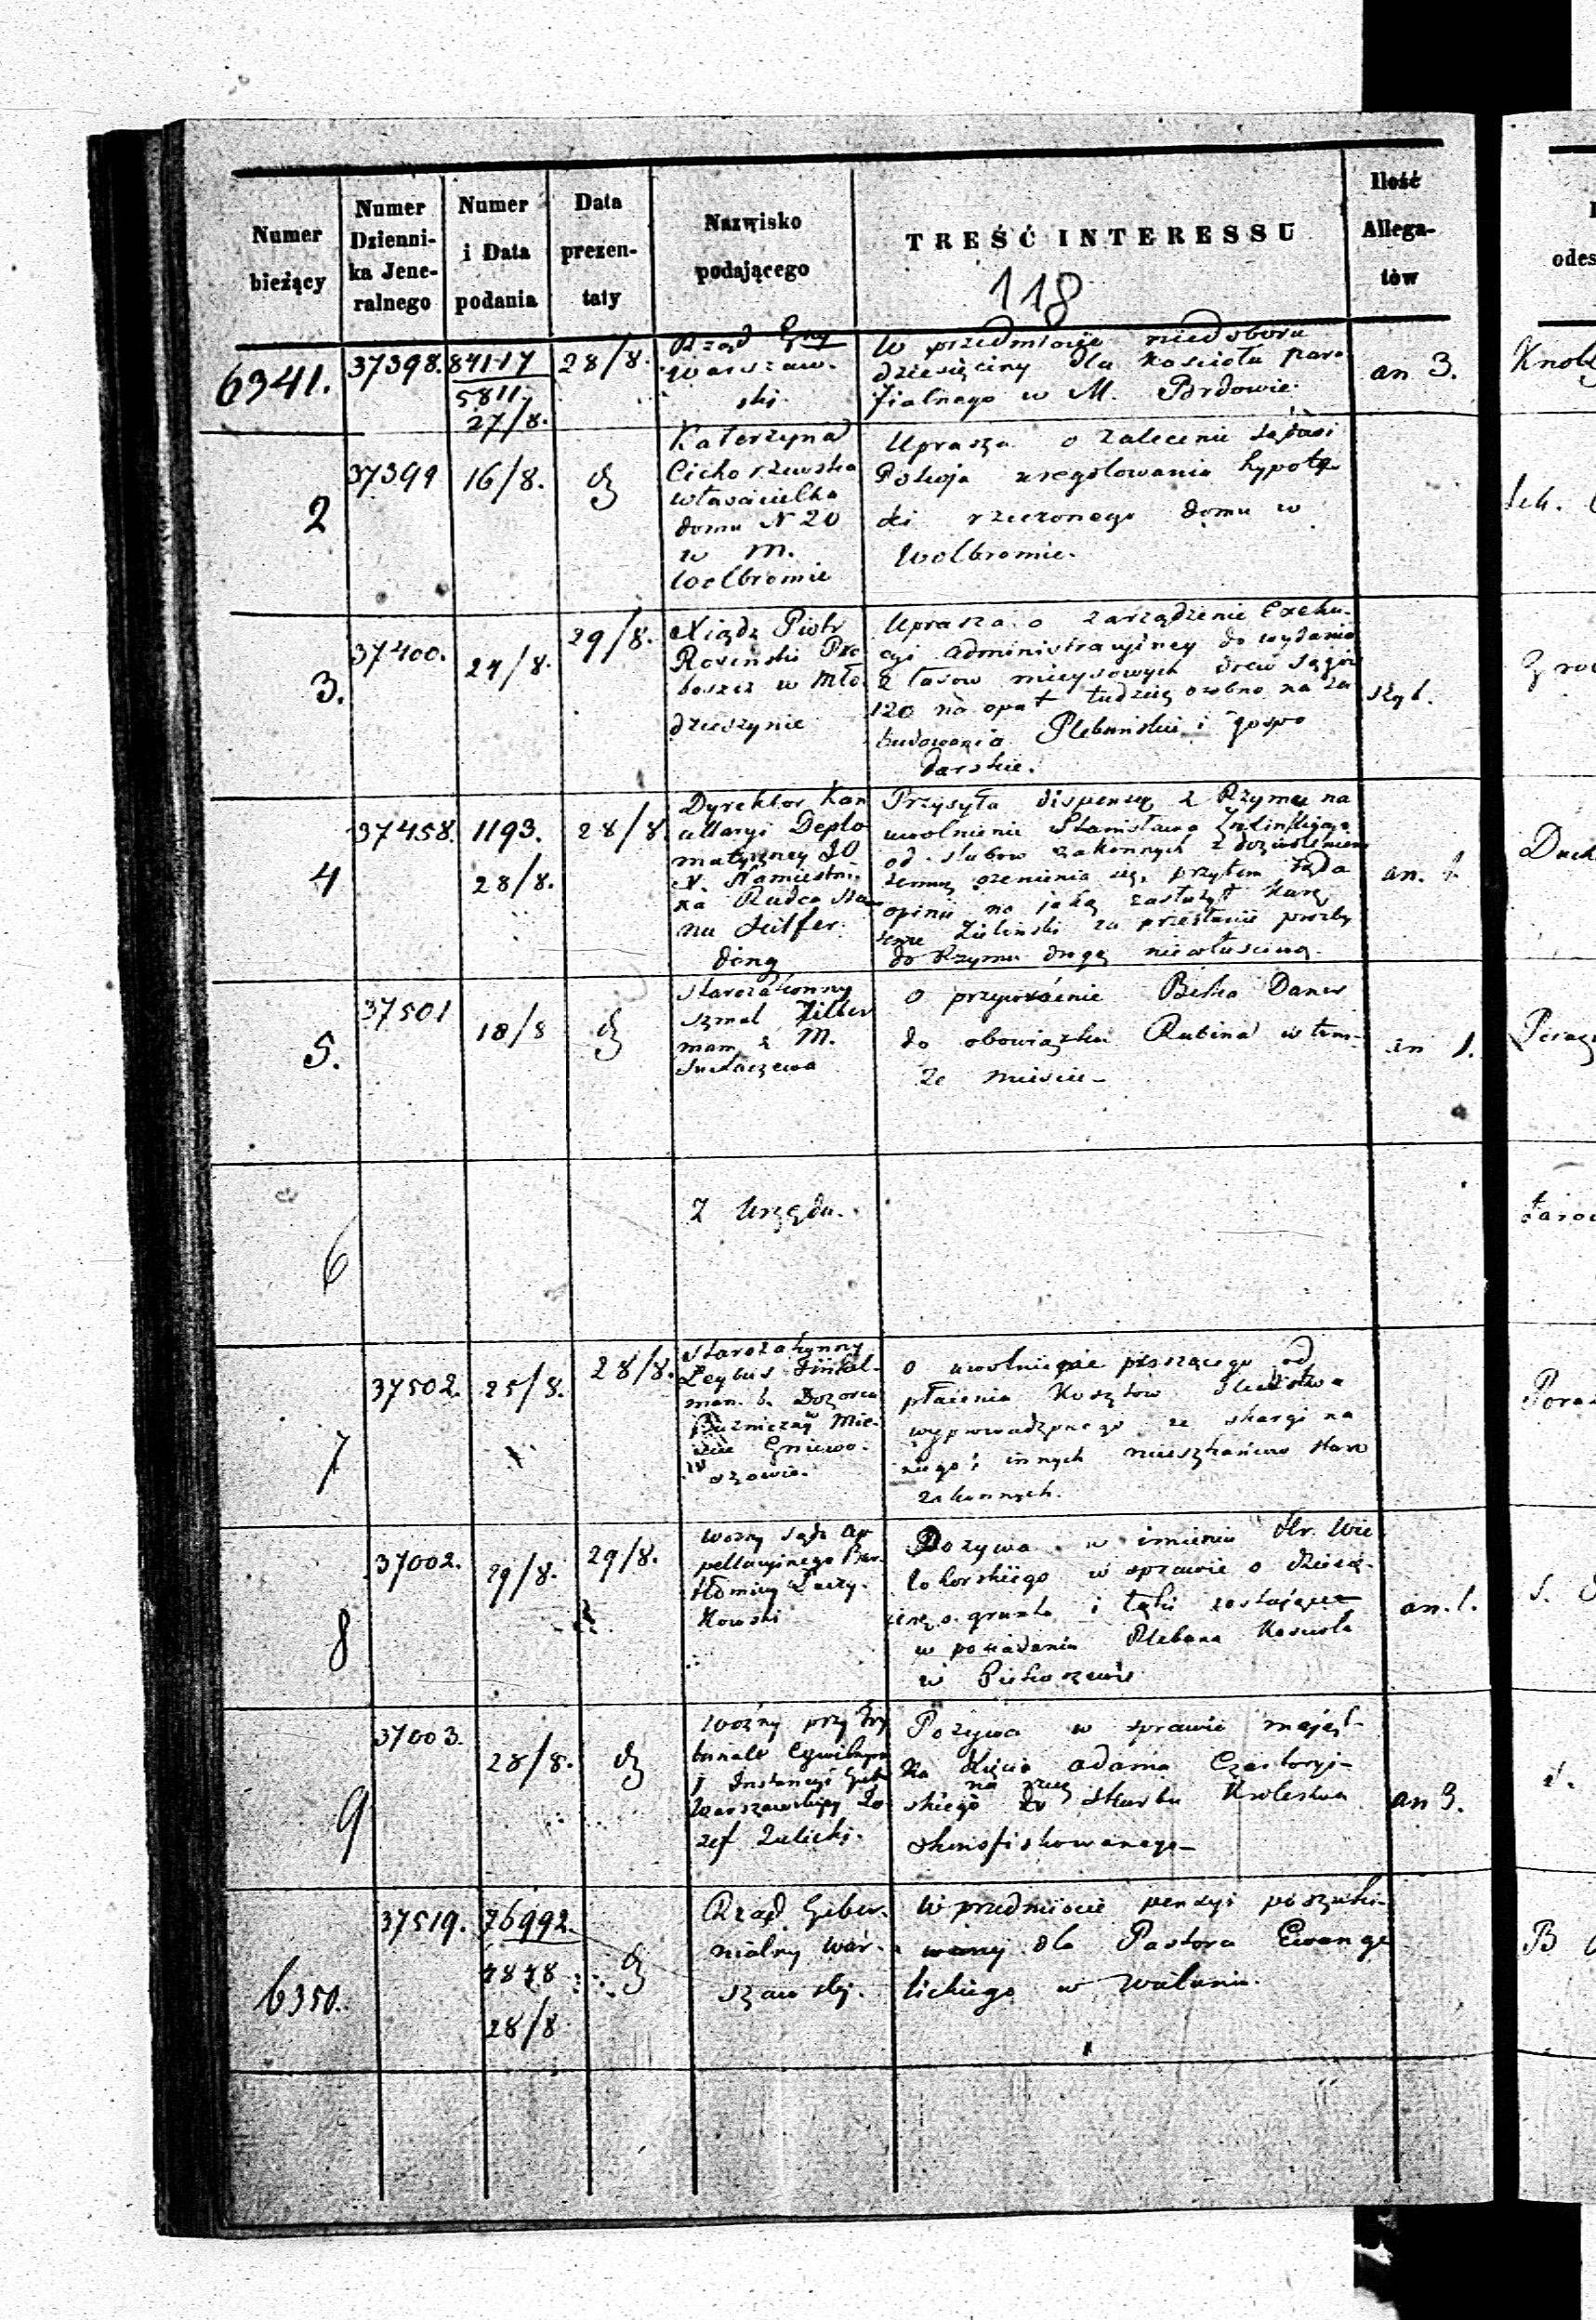 Numer bieżący
Numer Dzienni-
ka Jene-
ralnego
Numer i Data podania
Data prezen-
taty
Nazwisko podającego
TREŚĆ INTERESSU
118
Ilość Allega-
tów
odes
6341.
37398.
84117
5811.
27/8.
28/8.
Rząd Gny
Warszaw.
ski.
W przedmiocie niedoboru
dziesięciny dla Kościoła para
fialnego w M. Brdowie.
an 3.
2
37399
16/8.
Katarzyna
Cichorzewska
właścicielka
domu N 20
w m.
Wolbromie
Uprasza o zalecenie Sędziemu
Pokoju uregulowania hypote
ki rzeczonego domu w
Wolbromie.
3.
37400.
24/8.
29/8.
Xiądz Piotr
Rosinski Pro
boszcz w Mło
dzieszynie
Uprasza o zarządzenie Exeku-
cyi administracyjney do wydania
z lasów mieyscowych drew sągów
120 na opał tudzież osobno na za
budowania Plebanskie i gospo
darskie.
4
37458.
1193.
28/8.
28/8.
Dyrektor Kan
cellaryi Deplo
matyczney JO
X. Namiestni-
ka Radca Sta
nu
ding
Przysyła dispensę z Rzymu na
uwolnienie Stanisława Zielinskiego
od slubow zakonnych z dozwoleniem
ożenienia się, przytem żąda
opinii na jaką zasłużył karę
Zielinski za przesłanie prozby
do Rzymu drogą niewłaściwą.
an. 1.
5.
37501
18/8
Starozakonny
Szmul Zilber
man z M.
Sochaczewa
O przywrócenie
do obowiązku Rabina w tem-
że mieście
an 1.
6
Z Urzędu.
7
37502.
25/8.
28/8.
Starozakonny
Leybus Finkel-
man b. Dozorca
Bużniczny w Mie-
ście Gniewo-
szowie.
o uwolnienie proszącego od
płacenia Kosztów Sledztwa
wyprowadzonego ze skargi na
niego i innych mieszkańców staro
zakonnych.
8
37002.
29/8.
29/8.
Wozny Sądu ap
pellacyinego Bar-
tłomiey
kowski
Pozywa w imieniu Hr. Wie
lohorskiego w sprawie o dziesię-
cinę o grunta i łąki zostające
w posiadaniu Plebana Kościoła
w Piekoszewie
an. 1.
9
37003.
28/8.
Woźny przy Try
bunale Cywilnym
I Instancyi Gub
Warszawskiey Jó-
zef Zalicki.
Pozywa w sprawie mająt-
ku Xięcia Adama Czartoryj-
skiego na rzecz Skarbu Królestwa
skonfiskowanego
an 3.
6350.
37519.
76992.
7878
28/8
Rząd Guber-
nialny War-
szawski.
W przedmiocie pensyi poszuki-
waney dla Pastora Ewange
lickiego w Wieluniu.